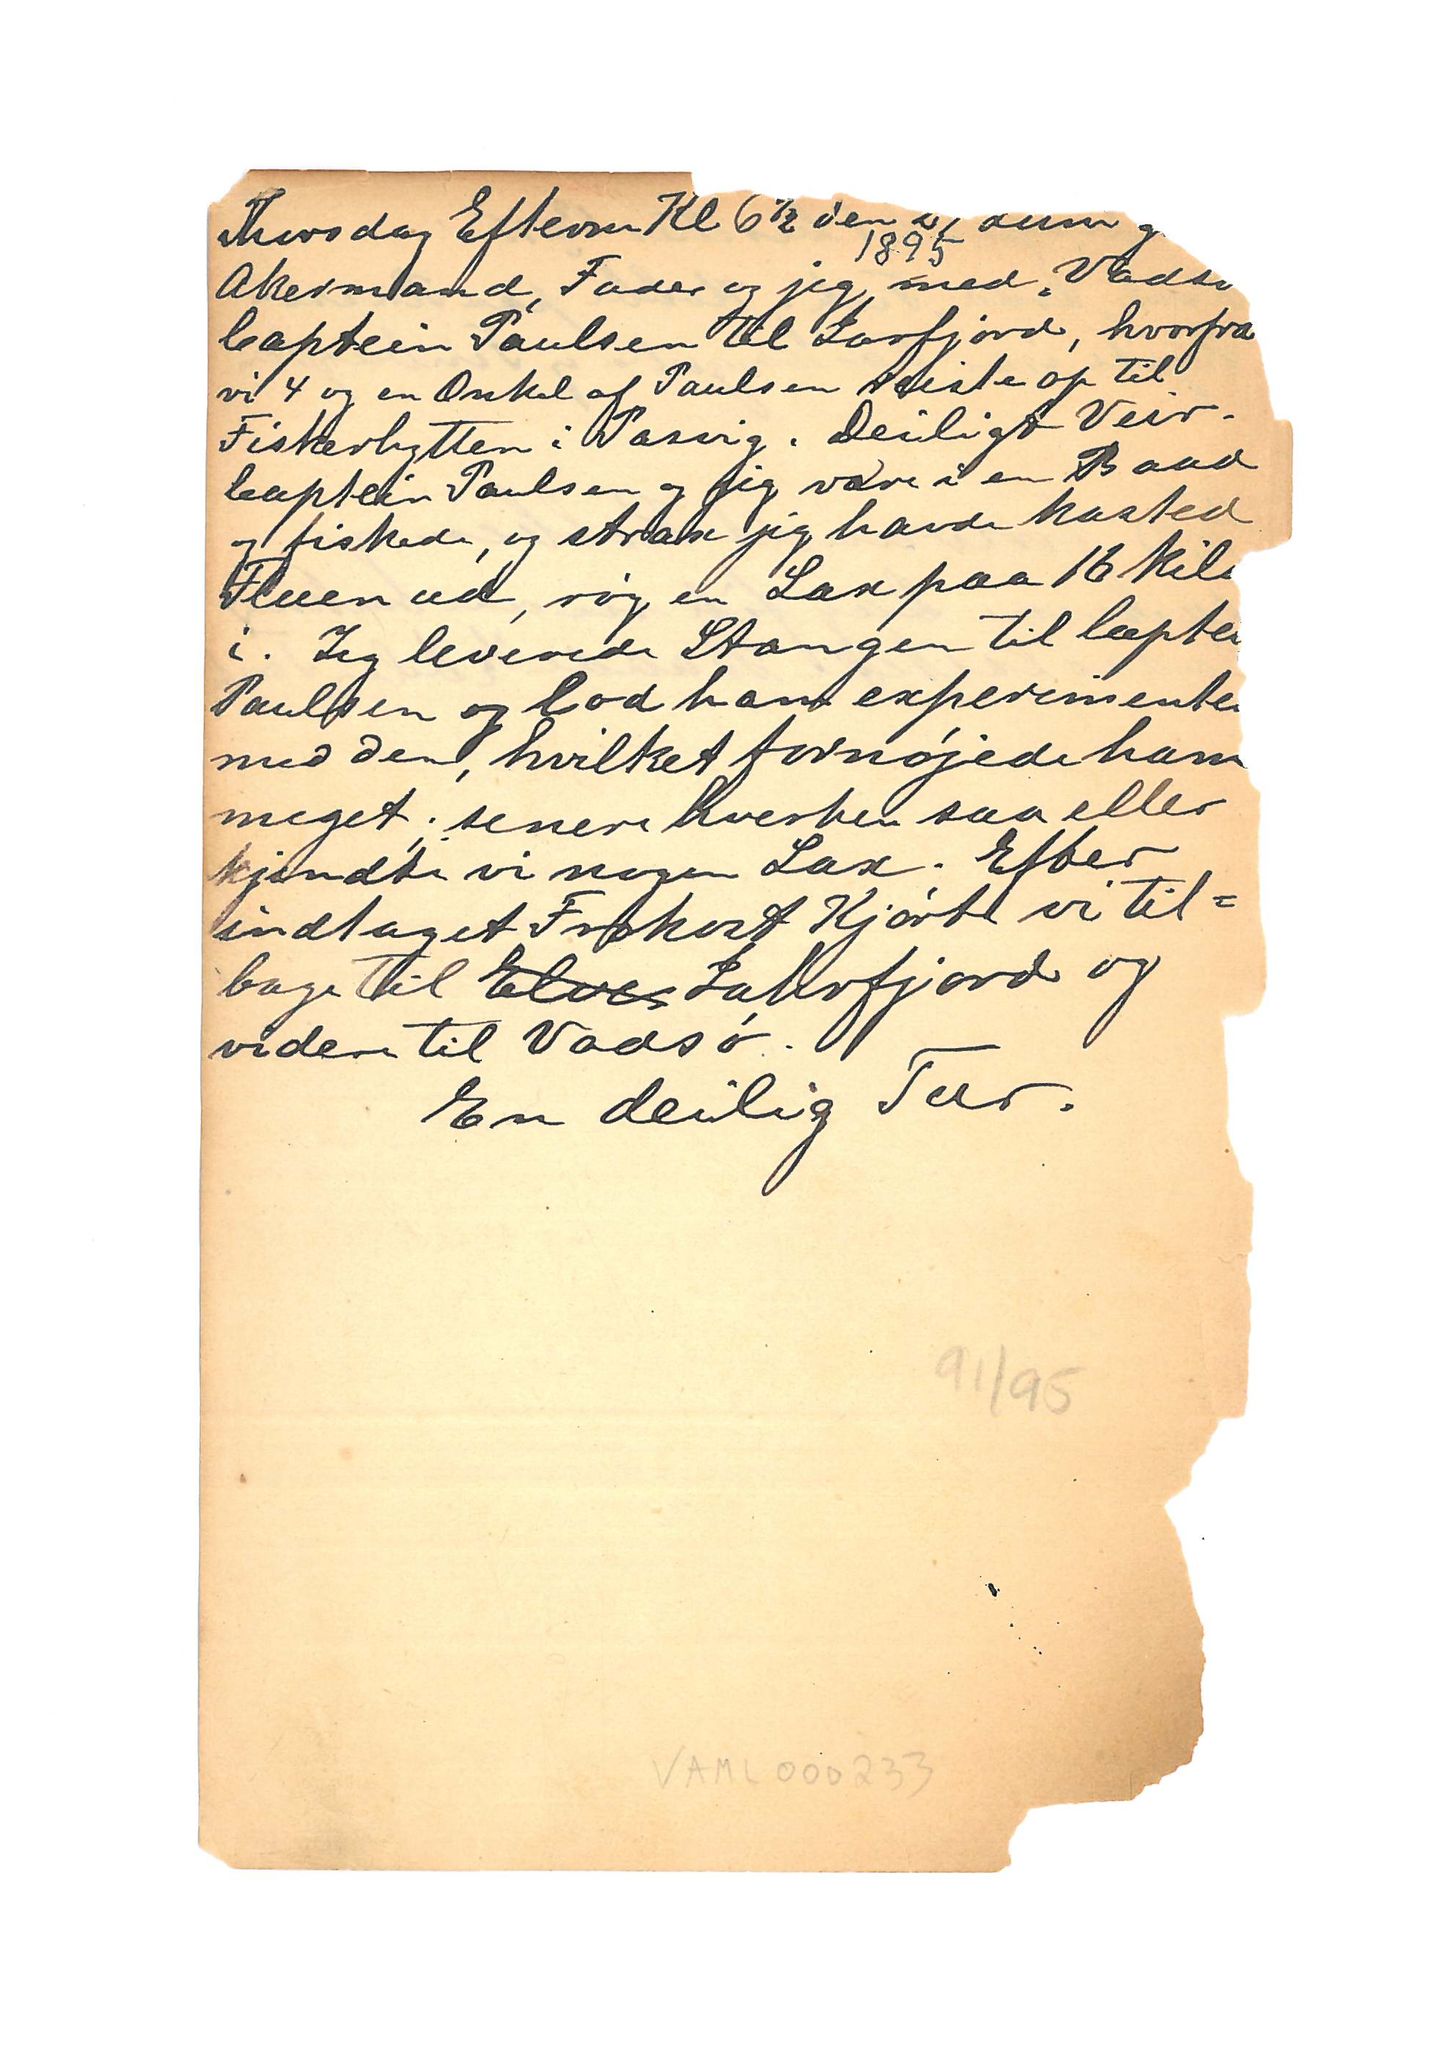 Thorsdag Efterm Kl 6 1/2 den
1895
Akermand, Fader og jeg med "Vadsø
Captein Paulsen til Jarfjord, hvorfra
vi 4 og en Onkel af Paulsen reiste op til
Fiskerhytten i Pasvig. Deiligt Veir.
Captein Paulsen og jeg vare i en Baad
og fiskede, og strax jeg havde kasted
Fluen ud, røg en Lax paa 16 Kilo
i. Jeg leverede Stangen til Captei
Paulsen og lod ham experimente
med den, hvilket fornøjede ham
meget; senere hverken saa eller
kjendte vi nogen Lax. Efter
indtaget Frokost Kjørte vi til=
bage til Elven Jahrfjord og
videre til Vadsø.
En deilig Tur.
91/95
VAML000233